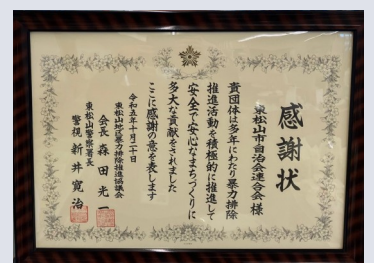 感謝状
東松山市自治会連合会様
貴団体は多年にわたり暴力排除
推進活動を積極的に推進して
安全で安心なまちづくりに
多大な貢献をされました
ここに感謝の意を表します
令和五年十月二十日
東松山地区暴力排除推進協議会
会長 森田光一
東松山警察署長
警視 新井寛治